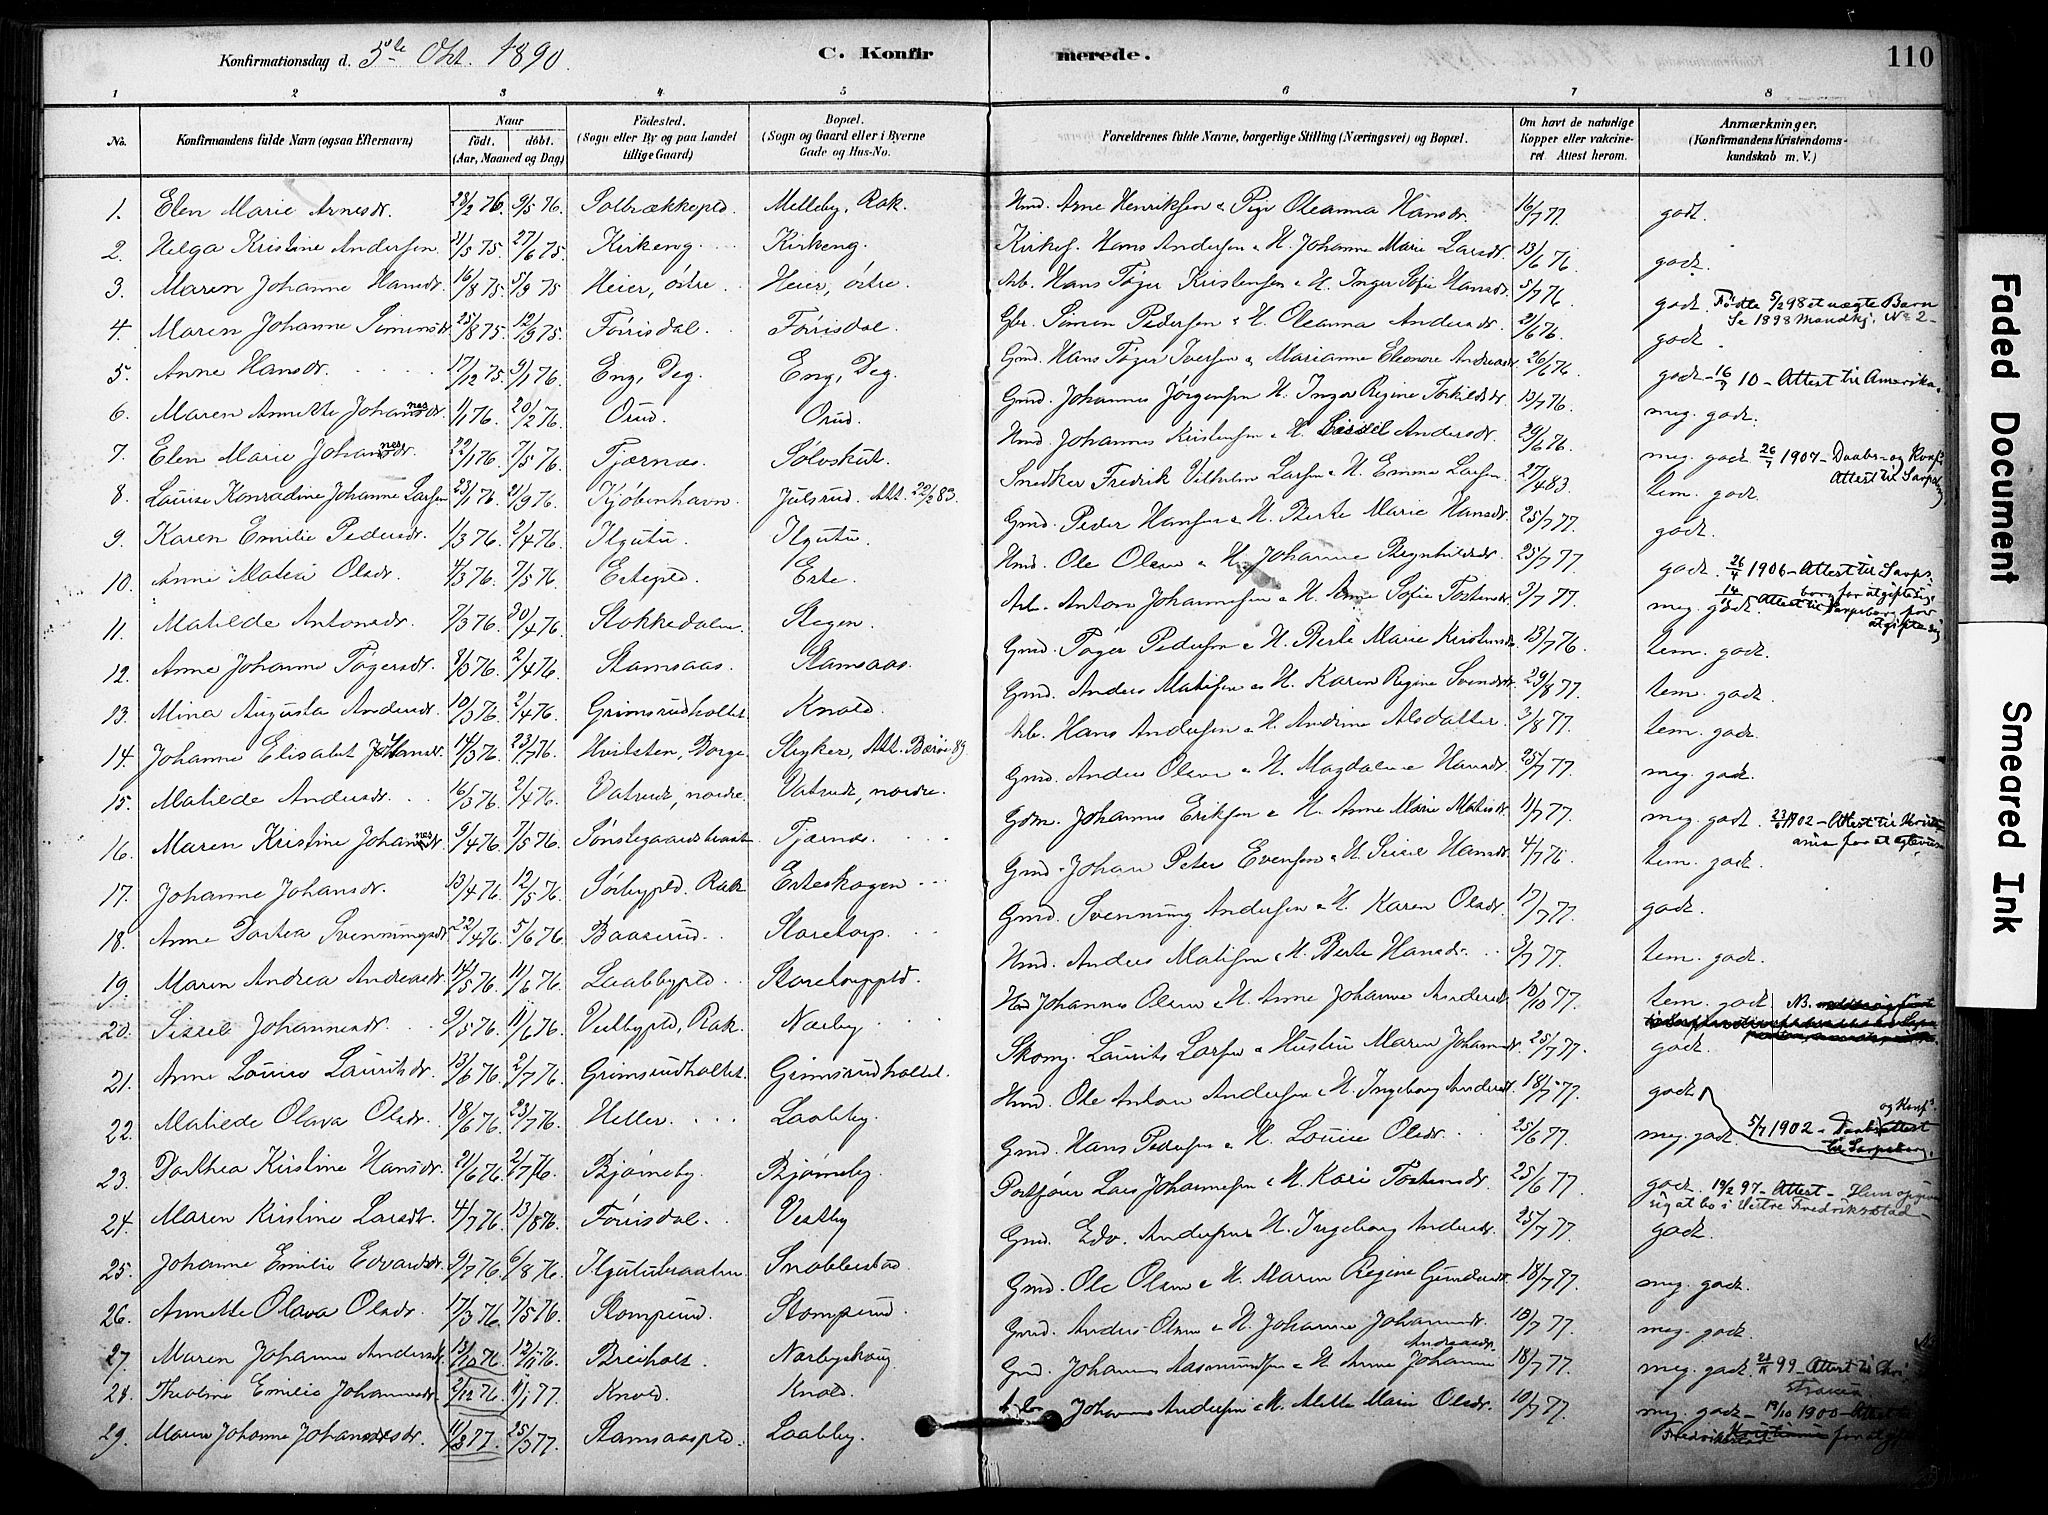 Konfirmationsdag d. 5te Okt. 1890. C. Konfirmerede. 110
1 2 3 4 5 6 7 8
No. Konfirmandens fulde Navn (ogsaa Efternavn) Naar födt. döbt. (Aar, Maaned og Dag) Födested. (Sogn eller By og paa Landet tillige Gaard) Bopæl. (Sogn og Gaard eller i Byerne Gade og Hus-No. Forældrenes fulde Navne, borgerlige Stilling (Næringsvei) og Bopæl. Om havt de naturlige Kopper eller vakcineret. Attest herom. Anmærkninger. (Konfirmandens Kristendomskundskab m. V.)
1. Elen Marie Arnesdr. 28/2 76. 9/5 76. Solbrækkepld. Melleby, Rak. Hmd. Arne Henriksen & Pige Oleanna Hansdr. 16/7 77. godt.
2. Helga Kristine Andersen 31/5 75. 27/6 75. Kirkeng. Kirkeng. Kirkes. Hans Andersen & H. Johanne Marie Larsdr. 13/6 76. godt.
3. Maren Johanne Hansdr. 16/8 75. 5/9 75 Heier, östre. Heier, östre. Arb. Hans Töger Kristensen & H. Inger Sofie Hansdr. 5/7 76. godt. Födte 5/2 98 et uægte Barn Se 1898 Mandkj. No 2
4. Maren Johanne Simensdr. 25/8 75. 12/9 75. Törrisdal. Törrisdal. Gbr. Simen Pedersen & H. Oleanna Andersdr. 2/6 76. godt.
5. Anne Hansdr. 17/12 75. 9/1 76. Eng, Deg. Eng, Deg. Gmd. Hans Töger Iversen & Marianne Eleonore Andreasdr. 26/6 76. godt - 16/7 10 - Attest til Amerika.
6. Maren Annette Johannesdr. 1/1 76. 20/2 76. Orud. Orud. Gmd. Johannes Jörgensen & H. Inger Regine Torkildsdr. 13/7 76. meg. godt.
7. Elen Marie Johannesdr. 22/1 76. 7/5 76. Tjærnæs. Sölvskut. Hmd. Johannes Kristensen & H. Sissel Andersdr. 29/6 76. meg. godt. 26/7 1907 - Daabs- og Konf. Attest til Sarpsborg
8. Louise Konradine Johanne Larsen 23/1 76. 21/9 76. Kjöbenhavn. Julsrud. Att. 22/2 83. Snedker Fredrik Vilhelm Larsen & H. Emma Larsen. 27/4 83. tem. godt.
9. Karen Emilie Pedersdr. 1/3 76. 2/4 76. Ilgutu. Ilgutu. Gmd. Peder Hansen & H. Berte Marie Hansdr. 25/7 77. godt.
10. Anne Matea Olsdr. 4/3 76. 7/5 76. Ertepld. Erte. Hmd. Ole Olsen & H. Johanne Brynhildsdr. 25/7 77. godt. 26/4 1906 - Attest til Sarpsborg for at giftes
11. Matilde Antonsdr. 7/3 76. 20/4 76. Stokkedalen. Stegen. Arb. Anton Johannesen & H. Anne Sofie Torstensdr. 3/7 77. meg. godt. Attest til Sarpsborg for at gifte sig
12. Anne Johanne Tögersdr. 9/3 76. 2/4 76. Stamsaas. Stamsaas. Gmd. Töger Pedersen & H. Berte Marie Kristensdr. 13/7 76. tem. godt.
13. Mina Augusta Andersdr. 10/3 76. 2/4 76. Grimsrudholtet. Knold. Gmd. Anders Matisen & H. Karen Regine Svendsdr. 29/8 77. tem. godt.
14. Johanne Elisabet Hansdr. 14/3 76. 23/7 76. Hvitsten, Borge. Styker, Att. Börö 89 Arb. Hans Andersen & H. Andrine Alsdatter. 3/8 77. tem. godt.
15. Matilde Andersdr. 16/3 76. 2/4 76. Vatvedt, nordre. Vatvedt, nordre. Gmd. Anders Olsen & H. Magdalene Hansdr. 25/7 77. meg. godt.
16. Maren Kristine Johannesdr. 9/4 76. 7/5 76. Sönstegaardsbraat. Tjærnæs. Gdm. Johannes Eriksen & H. Anne Marie Matisdr. 11/7 77. meg. godt. 23/6 1902 - Attest til Kristiania for at ægtevies
17. Johanne Johansdr. 13/4 76. 12/5 76. Sörbypld. Rak. Erteskogen Gmd. Johan Peter Evensen & H. Sissel Hansdr. 4/7 76. tem. godt.
18. Anne Dortea Svenningsdr. 22/4 76. 5/6 76. Baaserud. Storetorp. Gmd. Svenning Andersen & H. Karen Olsdr. 17/7 77. godt.
19. Maren Andrea Andersdr. 14/5 76. 11/6 76. Laabbypld. Storetorppld. Hmd. Anders Matisen & H. Berte Hansdr. 3/7 77. tem. godt.
20. Sissel Johannesdr. 9/5 76. 11/6 76. Vestbypld, Rak. Narby. Hmd Johannes Olsen & H. Anne Johanne Andersdr. 10/10 77. tem. godt NB.
21. Anne Louise Lauritsdr. 13/6 76. 2/7 76. Grimsrudholtet. Grimsrudholtet. Skomg. Laurits Larsen & Hustru Maren Johannesdr. 25/7 77. godt.
22. Matilde Olava Olsdr. 18/6 76. 23/7 76. Heller. Laabby. Hmd. Ole Anton Andersen & H. Ingeborg Andersdr. 18/7 77. godt 5/7 1902 - Daabs og Konf. attest til Sarpsborg.
23. Dorthea Kristine Hansdr. 21/6 76. 2/7 76. Bjørneby Bjørneby. Gmd. Hans Pedersen & H. Louise Olsdr. 25/6 77. meg. godt.
24. Maren Kristine Larsdr. 4/7 76. 13/8 76. Törrisdal. Vestby Portför Lars Johannesen & H. Kari Torstensdr. 25/6 77. godt. 19/2 97 - Attest - Hun opgiver sig at bo i Vestre Fredrikstad
25. Johanne Emilie Edvardsdr. 9/7 76. 6/8 76. Ilgutubraaten Snobberstad. Gmd. Edv. Andersen & H. Ingeborg Andersdr. 25/7 77. godt.
26. Annette Olava Olsdr. 17/3 76. 7/5 76. Stomperud. Stomperud. Gmd. Ole Olsen & H. Maren Regine Gundersdr. 18/7 77. meg. godt.
27. Maren Johanne Andersdr. 13/10 76. 12/11 76. Breiholt. Narbyskoug Gmd. Anders Olsen & H. Johanne Johannesdr. 19/7 77. meg. godt.
28. Theoline Emilie Johannesdr. 2/12 76. 1/1 77. Knold. Knold. Gmd. Johannes Aasmundsen & H. Anne Johanne Andreasdr. 18/7 77. meg. godt. 99 - Attest til
29. Maren Johanne Johannesdr. 11/3 77. 25/3 77. Stamsaaspld. Laabby. Johannes Andersen & H. Mette Marie Olsdr. 10/7 77. meg. godt - 19/10 1900 - Attest Fredrikstad Kristiania for at gifte
Faded Document
Smeared Ink